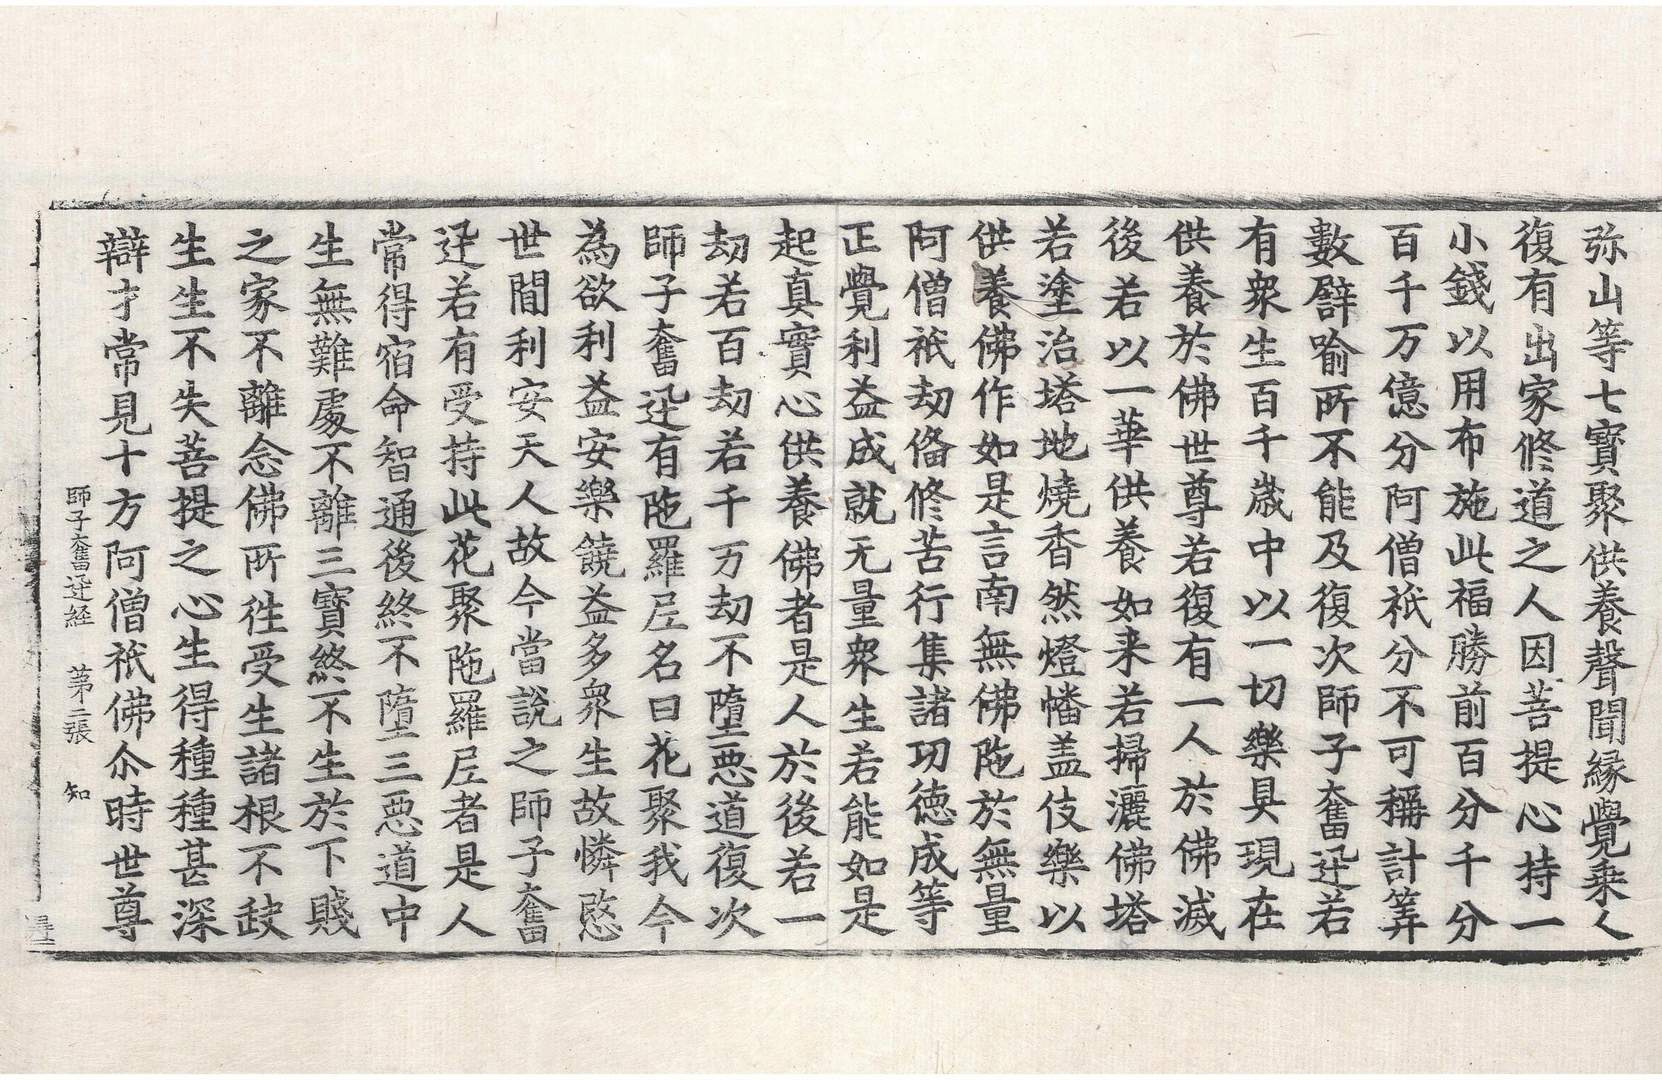 弥山等七寶聚供養聲聞縁覺乗人
復有出家修道之人因菩提心持一
小錢以用布施此福勝前百分千分
百千万億分阿僧祇分不可稱計筭
數譬喻所不能及復次師子奮迅若
有衆生百千歳中以一切樂具現在
供養於佛世尊若復有一人於佛滅
後若以一華供養如来若掃灑佛塔
若塗治塔地燒香然燈幡盖伎樂以
供養佛作如是言南無佛陁於無量
阿僧祇劫俻修苦行集諸功徳成等
正覺利益成就无量衆生若能如是
起真實心供養佛者是人於後若一
劫若百劫若千万劫不墮惡道復次
師子奮迅有陁羅尼名曰花聚我今
為欲利益安樂饒益多衆生故憐愍
世間利安天人故今當說之師子奮
迅若有受持此花聚陁羅尼者是人
常得宿命智通後終不墮三惡道中
生無難處不離三寶終不生於下賤
之家不離念佛所徃受生諸根不缺
生生不失菩提之心生得種種甚深
辯才常見十方阿僧祇佛尒時世尊
師子奮迅經 第二張 知